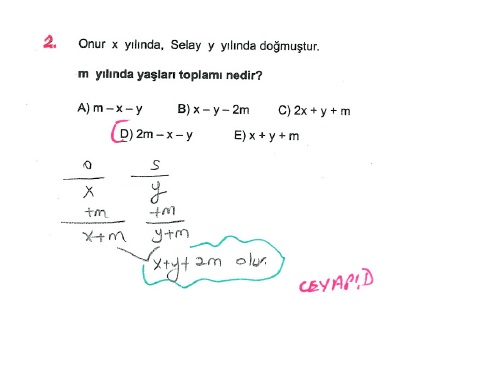 2. Onur x yılında, Selay y yılında doğmuştur.
m yılında yaşları toplamı nedir?
A) m – x – y B) x – y – 2m C) 2x + y + m
D) 2m – x – y E) x + y + m
O S
x y
+m +m
x+m y+m
x+y+2m olur.
CEVAP!D